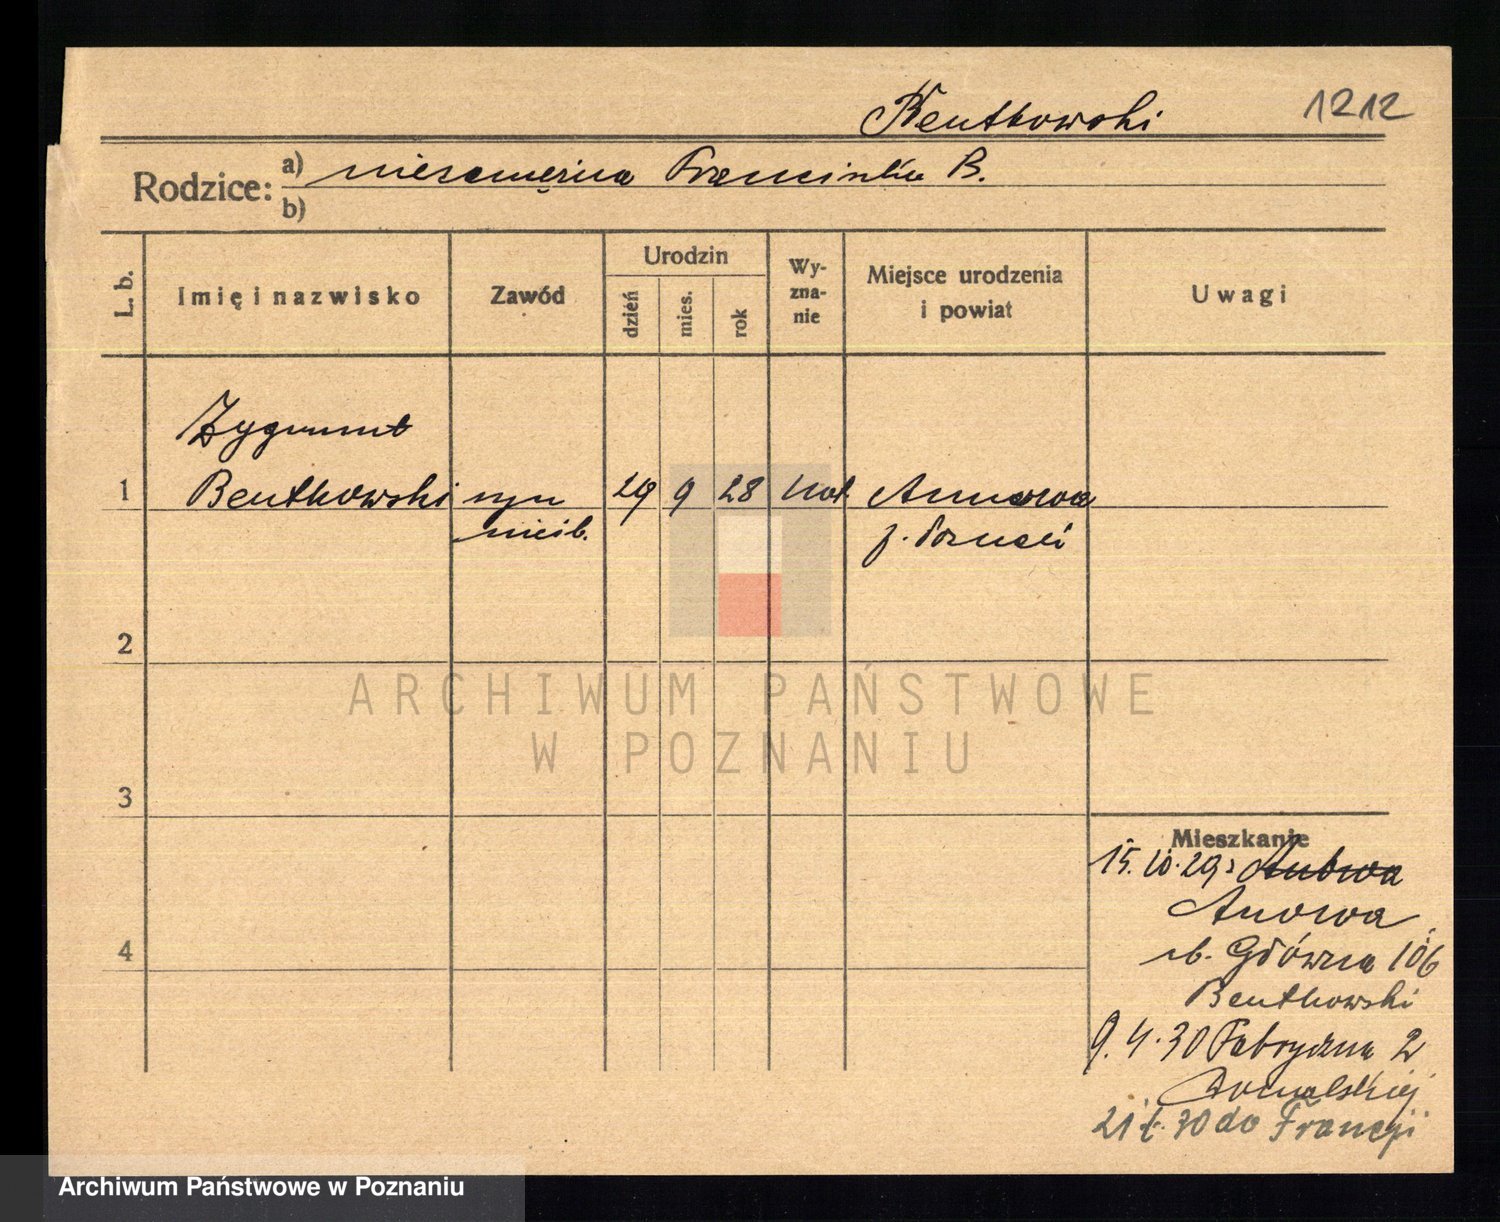 Bentkowski
1212
Rodzice: a) niezamężna Franciszka B.
b)
L. b.
Imię i nazwisko
Zawód
Urodzin
dzień
mies.
rok
Wy-
zna-
nie
Miejsce urodzenia
i powiat
Uwagi
Zygmunt
1 Bentkowski syn 29 9 28 kat.
nieśl.
2
3
4
ARCHIWUM PAŃSTWOWE
W POZNANIU
Mieszkanie
15.10.29
ul. Główna 106
Bentkowski
9.4.30 Fabryczna 2
30 do Francji
Archiwum Państwowe w Poznaniu